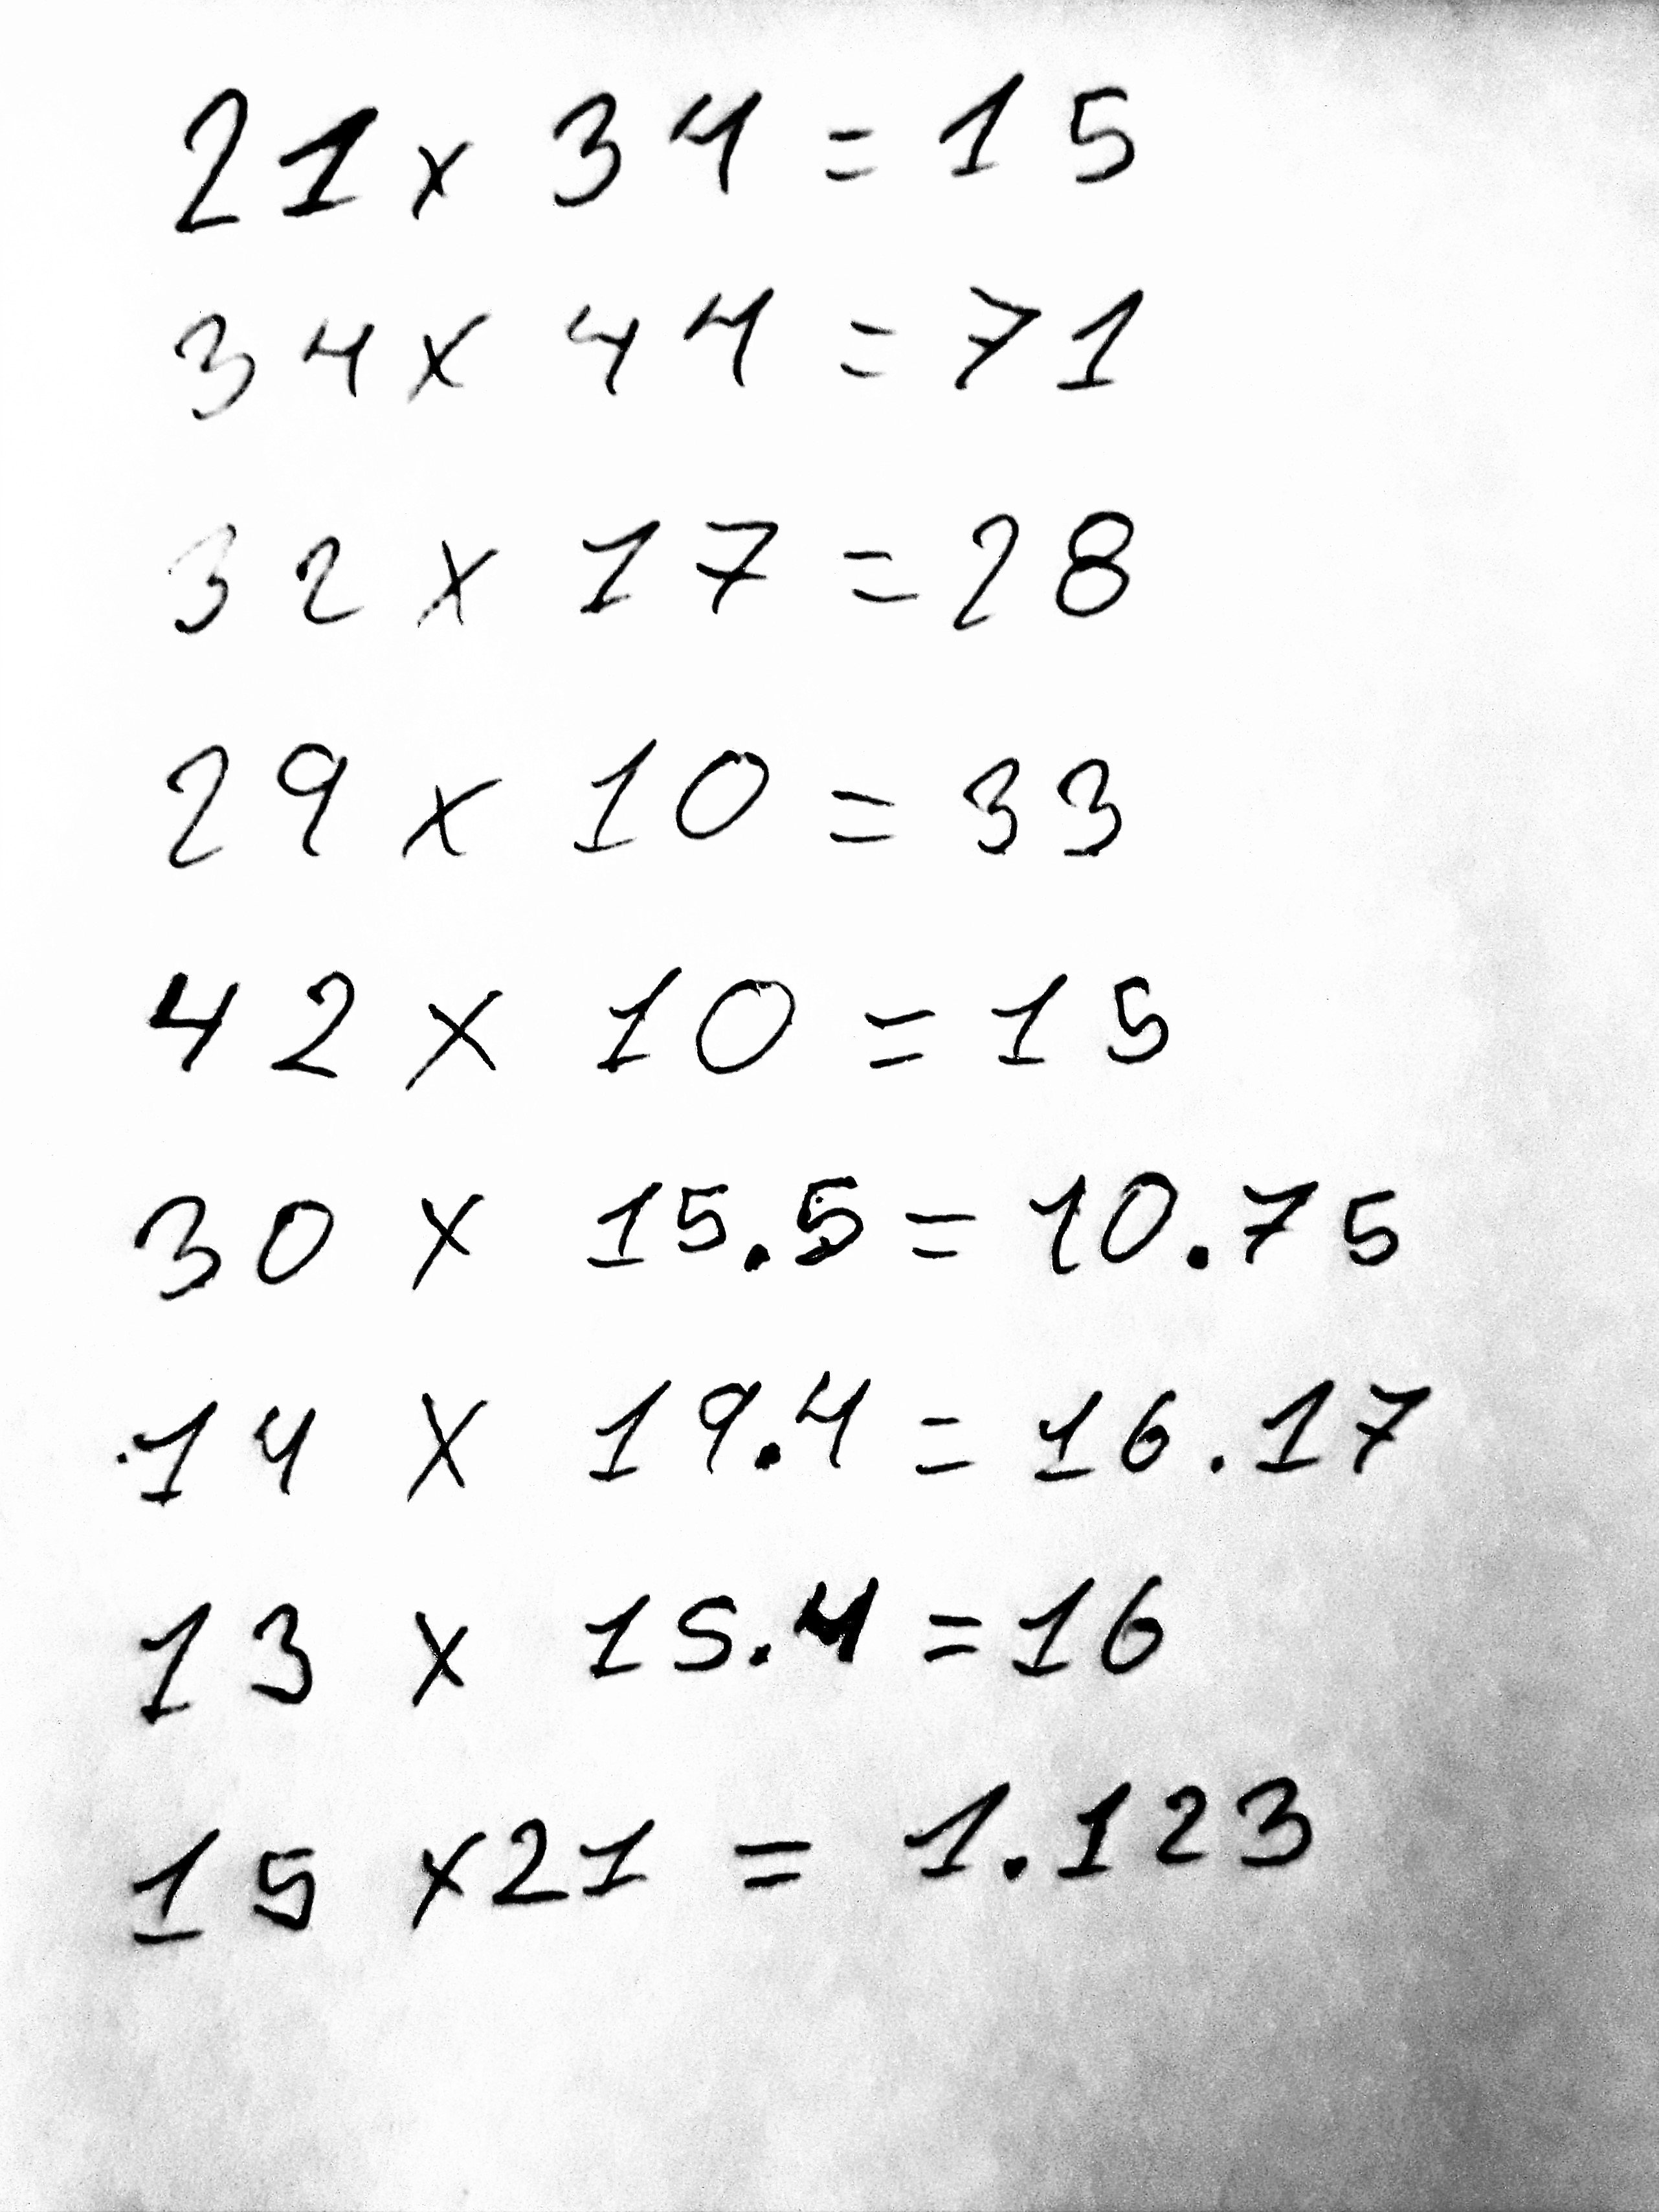 21 x 34 = 15
34 x 44 = 71
32 x 17 = 28
29 x 10 = 33
42 x 10 = 15
30 x 15.5 = 10.75
14 x 19.4 = 16.17
13 x 15.4 = 16
15 x 21 = 1.123